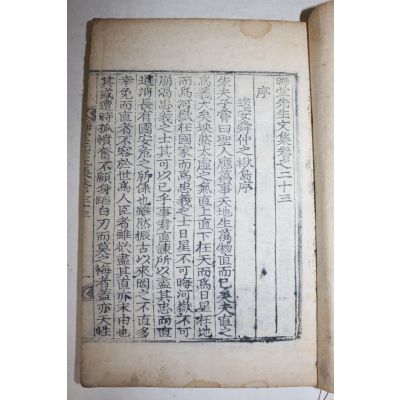 晦堂先生文集卷之二十三
序
送安舜仲之楸島序
生夫子嘗曰聖人應萬事天地生萬物直而已矣夫直之
爲大矣坱然太虛之氣直上直下在天而爲日星在地
而爲河嶽在國家而爲忠義之士日星不可晦河嶽不可
崩渴忠義之士其可以已乎事君直諫所以盡其忠而直
道消長有國安危之所係也雖然振古以來罔之不直多
幸免而直者不容於世爲人臣者雖欲盡其直亦末由也
其或遭時孤憤奮不顧身蹈白刃而莫之悔者蓋亦天性